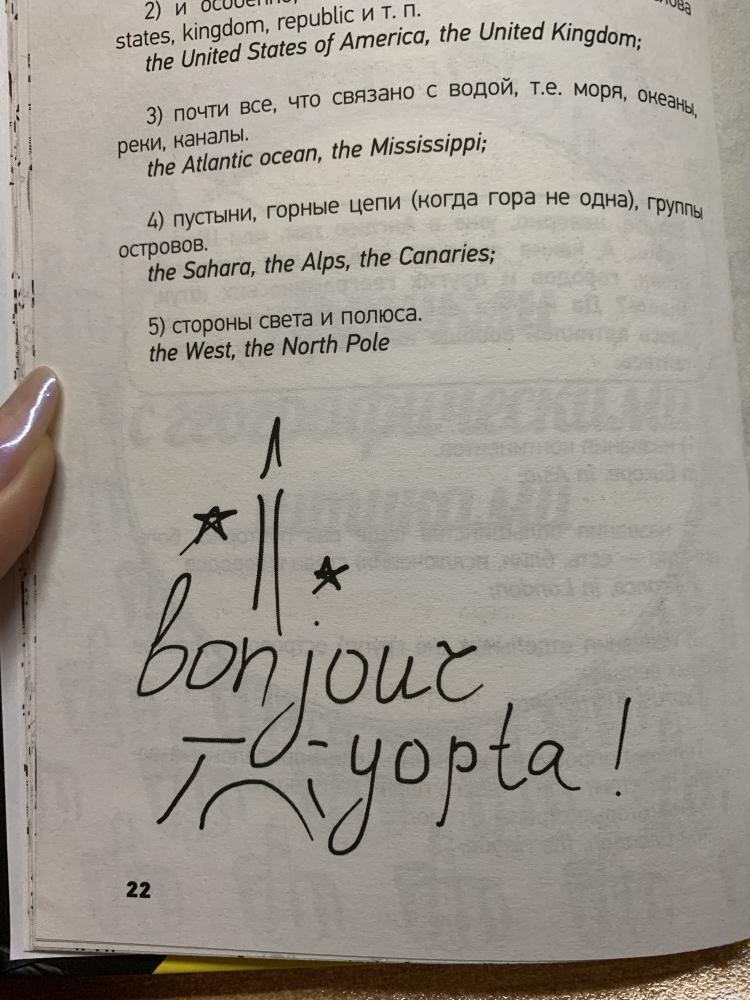 2) и особенно,
states, kingdom, republic и т. п.
the United States of America, the United Kingdom;
3) почти все, что связано с водой, т.е. моря, океаны,
реки, каналы.
the Atlantic ocean, the Mississippi;
4) пустыни, горные цепи (когда гора не одна), группы
островов.
the Sahara, the Alps, the Canaries;
5) стороны света и полюса.
the West, the North Pole
bonjour
-yopta!
22